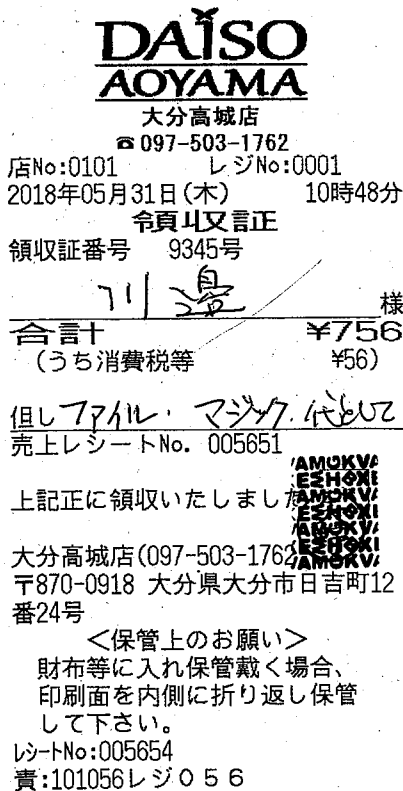 DAISO
AOYAMA
大分高城店
☎097-503-1762
店No:0101 レジNo:0001
2018年05月31日(木) 10時48分
領収証
領収証番号 9345号
川邉 様
合計 ¥756
(うち消費税等 ¥56)
但しファイル・マジック代として
売上レシートNo. 005651
上記正に領収いたしました
大分高城店(097-503-1762
〒870-0918 大分県大分市日吉町12
番24号
<保管上のお願い>
財布等に入れ保管戴く場合、
印刷面を内側に折り返し保管
して下さい。
レシートNo:005654
責:101056レジ056